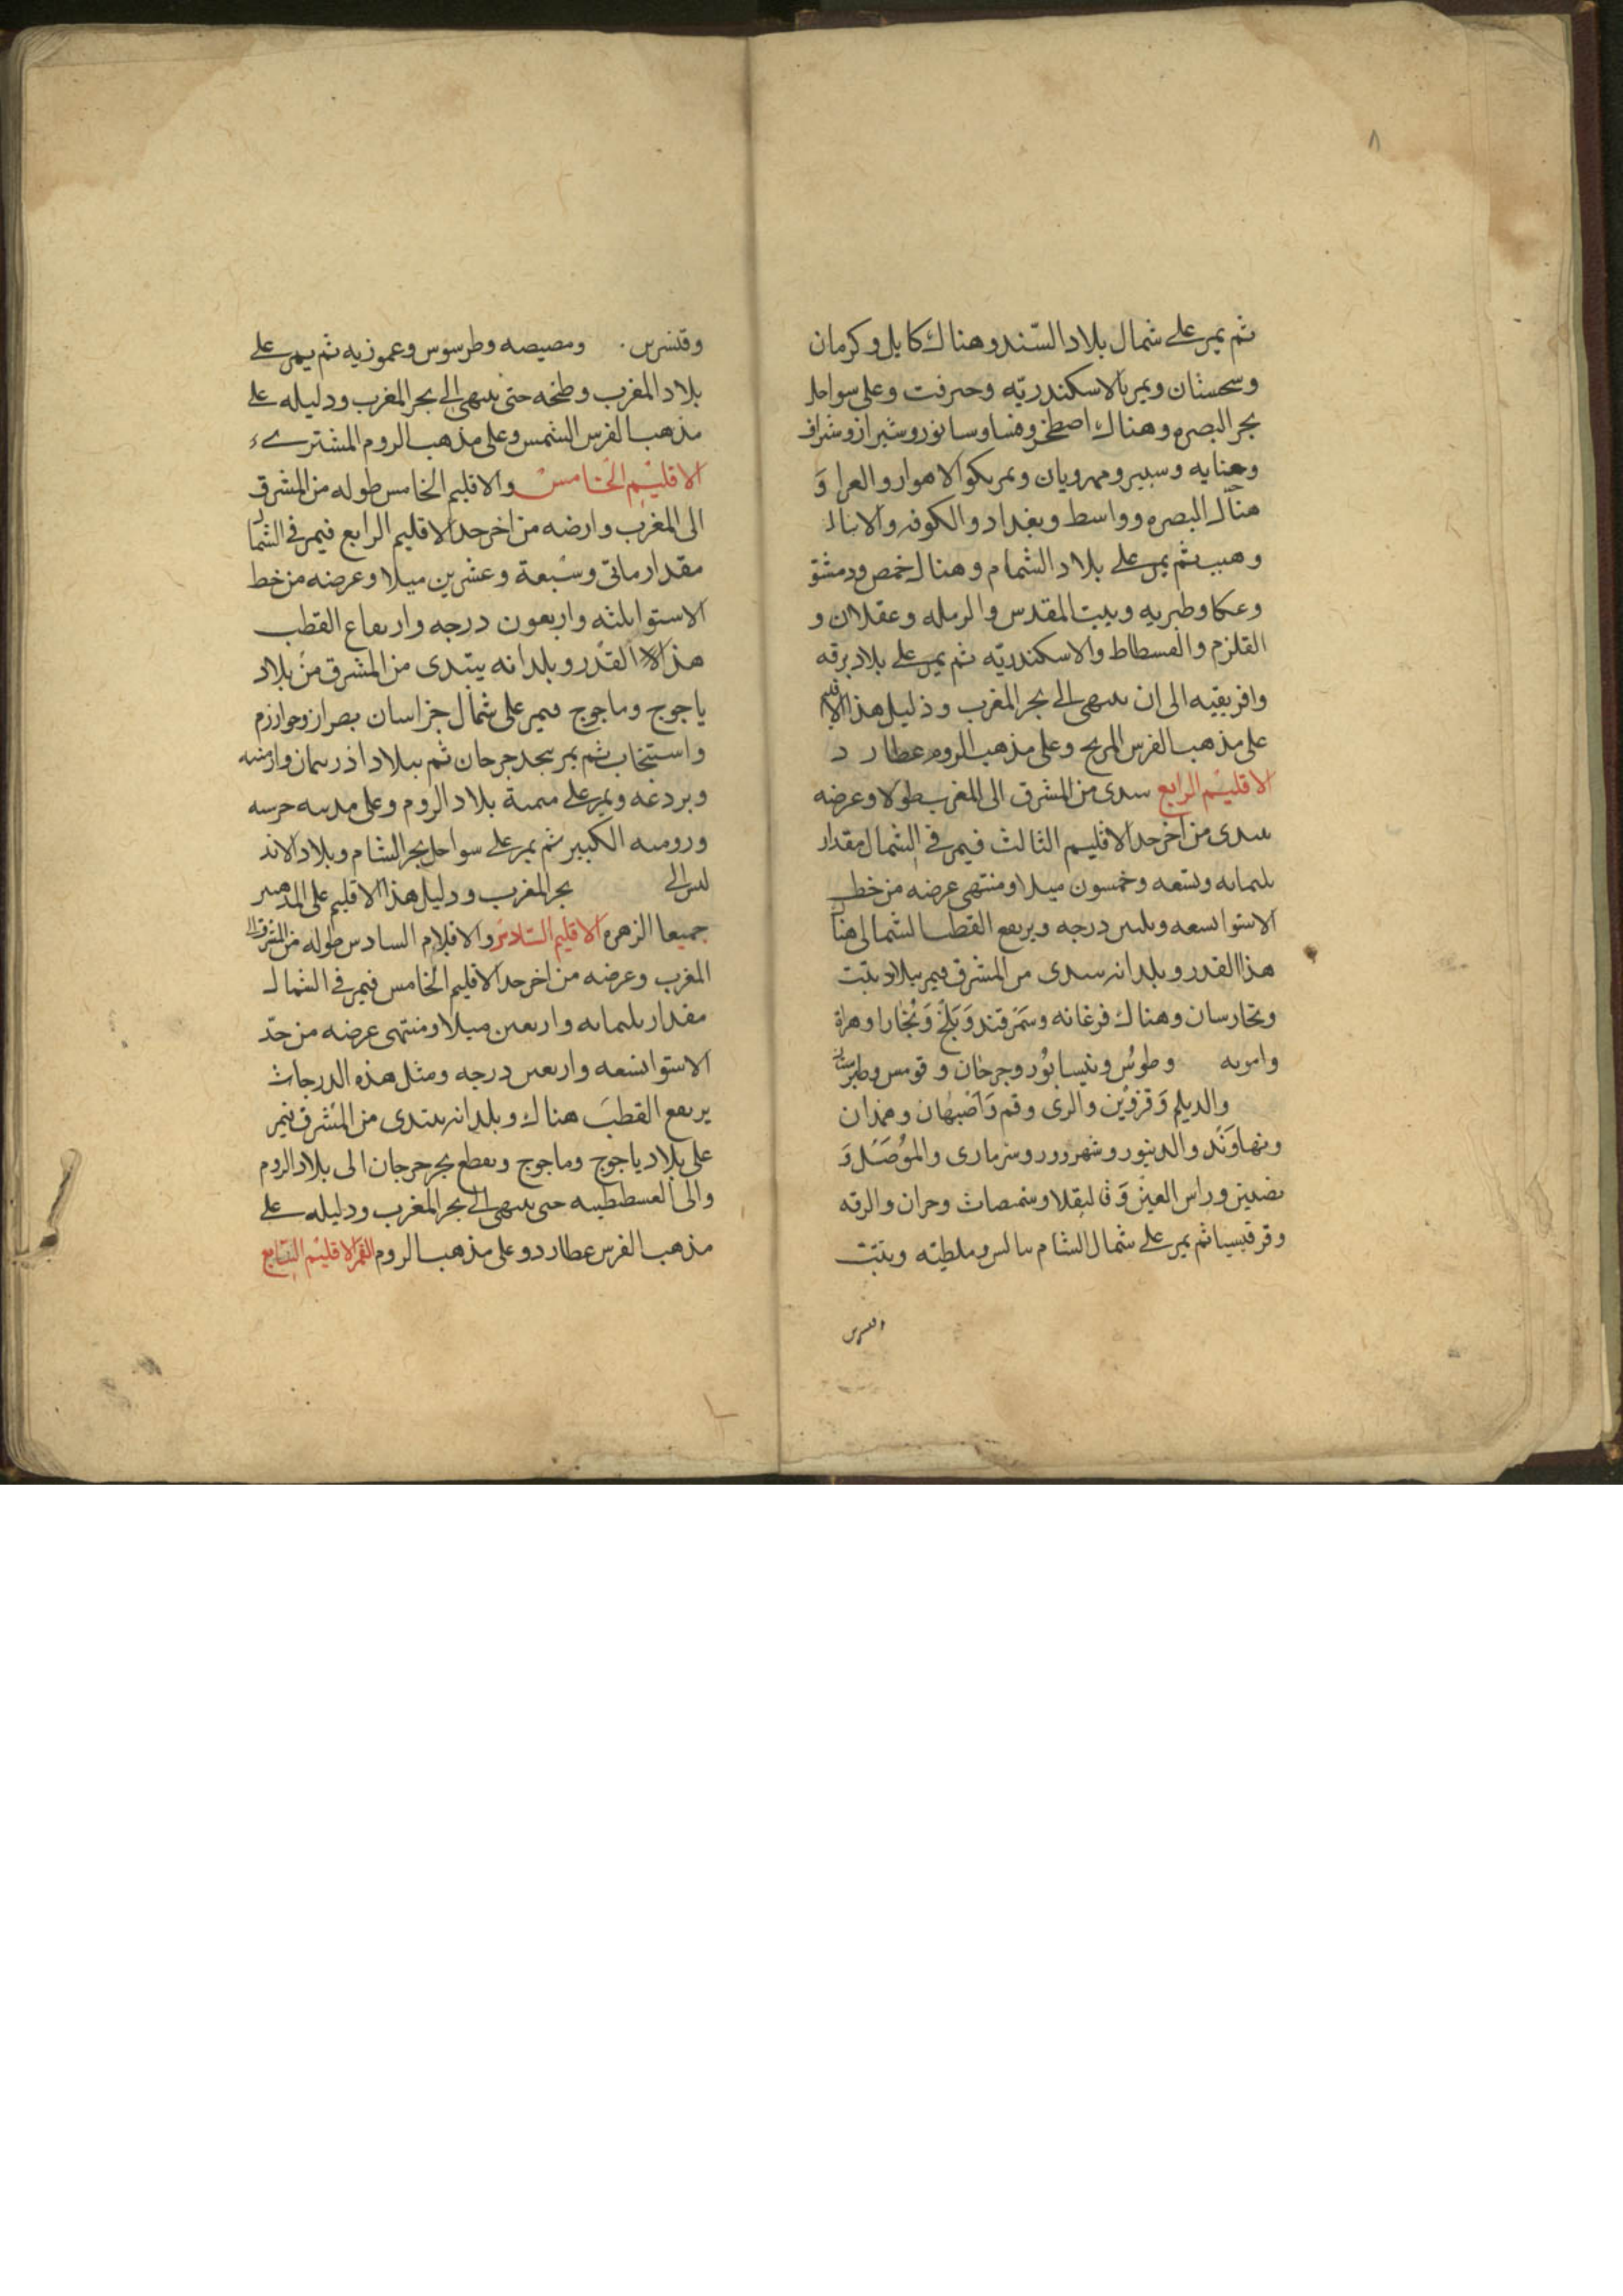 ٨
ثم يمر على شمال بلاد السند وهناك كابل وكرمان
وسجستان ويمر بالاسكندريه وحبرفت وعلى سواحل
بحر البصره وهناك اصطخر وفسا وسابور وشيراز وشراف
وجنابه وسينير ومهرويان ويمر بكوالاهواز والعراق و
هناك البصره وواسط وبغداد والكوفه والانبار
وهيت ثم يمر على بلاد الشام وهناك حمص ودمشق
وعكا وطبريه وبيت المقدس والرمله وعقلان و
القلزم والفسطاط والاسكندريه ثم يمر على بلاد برقه
وافريقيه الى ان ينتهى الى بحر المغرب وذليل هذا الاقليم
على مذهب الفرس المريخ وعلى مذهب الروم عطارد
الاقليم الرابع يبتدى من المشرق الى المغرب طولا وعرضه
يبتدى من اخر حد الاقليم الثالث فيمر فى الشمال مقدار
ثلثمايه وتسعه وخمسون ميلا ومنتهى عرضه من خط
الاستوا تسعه وثلثين درجه ويرتفع القطب الشمالى هناك
هذا القدر وبلدانه يبتدى من المشرق فيمر ببلاد تبت
وتخارسان وهناك فرغانه وسمرقند وبلخ وبخارا وهراة
وامويه وطوس ونيسابور وجرجان وقومس وطبرستان
والديلم وقزوين والرى وقم واصبهان وهمدان
ونهاوند والدينور وشهرزور وسرمارى والموصل و
نصيبين وراس العين وقاليقلا وشمصاث وحران والرقه
وقرقيسيا ثم يمر على شمال الشام بالس وملطيه وتبت
وقنسرين ومصيصه وطرسوس وعموزيه ثم يمر على
بلاد المغرب وطنجه حتى ينتهى الى بحر المغرب ودليله على
مذهب الفرس الشمس وعلى مذهب الروم المشترى
الاقليم الخامس والاقليم الخامس طوله من المشرق
الى المغرب وارضه من اخر حد الاقليم الرابع فيمر فى الشمال
مقدار ماتى وسبعة وعشرين ميلا وعرضه من خط
الاستوا ثلثه واربعون درجه وارتفاع القطب
هذا القدر وبلدانه يبتدى من المشرق من بلاد
ياجوج وماجوج فيمر على شمال خراسان وخوارزم
واستنجاب ثم يمر ببحد جرجان ثم ببلاد اذربيمان وارمنيه
وبردعه ويمر على بلاد الروم وعلى
وروميه الكبير ثم يمر على سواحل بحر الشام وبلاد الاند
لس الى بحر المغرب ودليل هذا الاقليم على المذهبين
جميعا الزهره الاقليم السادس والاقلام السادس طوله من المشرق الى
المغرب وعرضه من اخر حد الاقليم الخامس فيمر فى الشمال
مقدار ثلثمايه واربعين ميلا ومنتهى عرضه من حد
الاستوا تسعه واربعين درجه ومثل هذه الدرجاث
يرتفع القطب هناك وبلدانه يبتدى من المشرق فيمر
على بلاد ياجوج وماجوج ويقطع بحر جرجان الى بلاد الروم
والى القسطنطينيه حتى ينتهى الى بحر المغرب ودليله على
مذهب الفرس عطارد وعلى مذهب الروم القمر الاقليم السابع